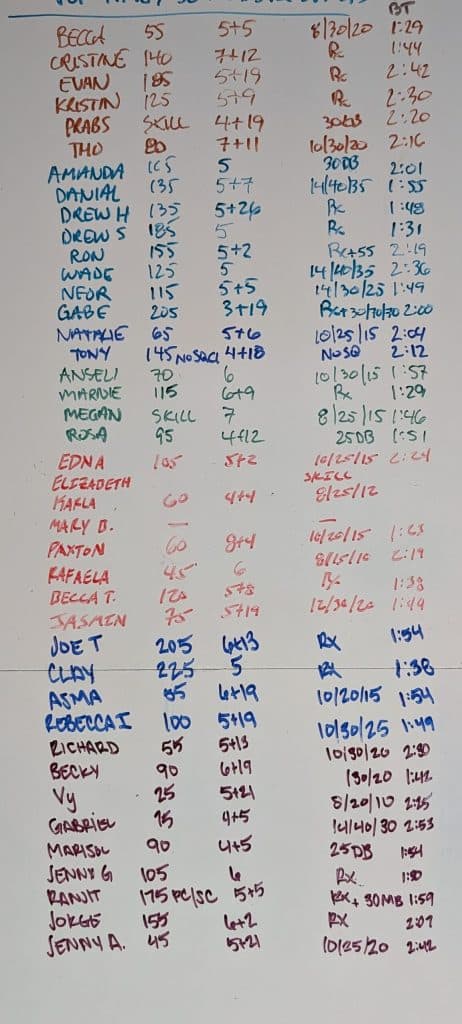 BT
BECCA 55 5+5 8/30/20 1:29
CRISTINE 140 7+12 Rx 1:44
EVAN 185 5+19 Rx 2:42
KRISTIN 125 5+9 Rx 2:30
PRABS SKILL 4+19 2:20
THO 80 7+11 10/30/20 2:16
AMANDA 165 5 30DB 2:01
DANIAL 135 5+7 14/40/35 1:55
DREW H 135 5+26 Rx 1:48
DREW S 185 5 Rx 1:31
RON 155 5+2 Rx+55 2:19
WADE 125 5 14/40/35 2:36
NEDR 115 5+5 14/30/25 1:49
GABE 205 3+19 Rx+30/70/70 2:00
NATALIE 65 5+6 10/25/15 2:04
TONY 145 4+18 NOSQ 2:12
ANSELI 70 6 10/30/15 1:57
MARNIE 115 6+9 Rx 1:29
MEGAN SKILL 7 8/25/15 1:46
ROSA 95 4+12 25DB 1:51
EDNA 105 5+2 10/25/15 2:24
ELIZABETH SKILL
KARLA 60 4+4 8/25/12
MARY B. — —
PAXTON 60 8+4 10/20/15 1:23
RAFAELA 45 6 8/15/10 2:19
BECCA T. 120 5+8 Rx 1:38
JASMIN 75 5+19 12/30/20 1:49
JOE T 205 6+13 RX 1:54
CLAY 225 5 RX 1:38
ASMA 85 6+19 10/20/15 1:54
REBECCA I 100 5+19 10/30/25 1:49
RICHARD 55 5+13 10/30/20 2:30
BECKY 90 6+19 /30/20 1:42
Vy 25 5+21 8/20/10 2:25
GABRIEL 75 4+5 14/40/30 2:53
MARISOL 90 4+5 25DB 1:54
JENNY G 105 6 RX 1:30
RANJIT 175 PC/SC 5+5 RX+ 30MB 1:59
JORGE 155 6+2 RX 2:07
JENNY A. 45 5+21 10/25/20 2:42